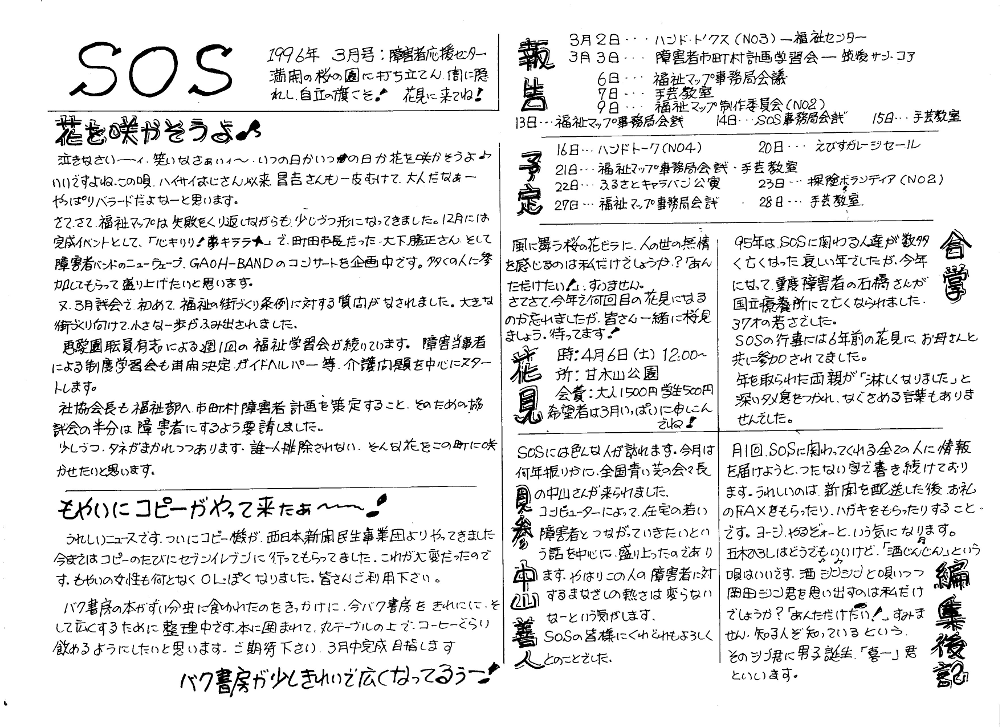 SOS
1996年 3月号:障害者応援センター
満開の桜の園に打ち立てん、闇に隠
れし、自立の旗をぞ! 花見に来てね!
花を咲かそうよ♪
泣きなさいーィ、笑いなさぁいィ〜、いつの日かいつの日か花を咲かそうよ♪
いいですよね、この唄、ハイサイおじさん以来、昌吉さんも一皮むけて、大人だなぁー
やっぱりバラードだよなーと思います。
さてさて、福祉マップは失敗をくり返しながらも、少しづつ形になってきました。12月には
完成イベントとして、「心キリリ!夢キララ★」で、町田市長だった、大下勝正さん、そして
障害者バンドのニューウェーブ、GAOH-BANDのコンサートを企画中です。多くの人に参
加してもらって盛り上げたいと思います。
又、3月議会で初めて、福祉の街づくり条例に対する質問がなされました。大きな
街づくり向けて、小さな一歩がふみ出されました、
恵愛園職員有志による週1回の福祉学習会が続いています。障害当事者
による制度学習会も再開決定、ガイドヘルパー等、介護問題を中心にスター
トします。
社協会長も福祉部へ、市町村障害者計画を策定すること、そのための協
議会の半分は障害者にするよう要請しました。
少しづつ、タネがまかれつつあります、誰一人排除されない、そんな花をこの町に咲
かせたいと思います。
もやいにコピーがやって来たぁ〜〜!
うれしいニュースです。ついにコピー機が、西日本新聞民生事業団よりやってきました
今まではコピーのたびにセブンイレブンに行ってもらってました、これが大変だったので
す、もやいの女性も何となくOLっぽくなりました。皆さんご利用下さい。
バク書房の本がずい分虫に食われたのをきっかけに、今バク書房をきれいに、そ
して広くするために整理中です。本に囲まれて、丸テーブルの上で、コーヒーぐらい
飲めるようにしたいと思います。ご期待下さい、3月中完成目指します
バク書房が少しきれいで広くなってるぅー!
報告
3月2日・・・ハンド・トークス(NO3)ー福祉センター
3月3日・・・障害者市町村計画学習会ー筑後サン・コア
6日・・・福祉マップ事務局会議
7日・・・手芸教室
9日・・・福祉マップ制作委員会(NO2)
13日・・・福祉マップ事務局会議 14日・・・SOS事務局会議 15日・・・手芸教室
予定
16日・・・ハンドトーク(NO4) 20日・・・えびすガレージセール
21日・・・福祉マップ事務局会議・手芸教室
22日・・・ふるさとキャラバン公演 23日・・・探険ボランティア(NO2)
27日・・・福祉マップ事務局会議 28日・・・手芸教室
風に舞う桜の花ビラに、人の世の無情
を感じるのは私だけでしょうか?「あん
ただけたい!」、すいません。
さてさて、今年で何回目の花見になる
のか忘れましたが、皆さん一緒に桜見
ましょう、待ってます!
花見
時:4月6日(土) 12:00〜
所:甘木山公園
会費:大人1500円 学生500円
希望者は3月いっぱいに申しこん
でね!
合掌
95年は、SOSに関わる人達が数多
く亡くなった哀しい年でしたが、今年
になって、重度障害者の石橋さんが
国立療養所にて亡くなられました、
37才の若さでした。
SOSの行事には6年前の花見に、お母さんと
共に参加されてました。
年を取られた両親が「淋しくなりました」と
深いタメ息をつかれ、なぐさめる言葉もありま
せんでした。
見参 中山善人
SOSには色んな人が訪れます。今月は
何年振りかに、全国青い芝の会々長
の中山さんが来られました、
コンピューターによって、在宅の若い
障害者とつながっていきたいとい
う話を中心に、盛り上ったのであり
ます、やはりこの人の障害者に対
するまなざしの熱さは変らない
なーという気がします。
SOSの皆様にくれぐれもよろしく
とのことでした、
編集後記
月1回、SOSに関わってくれる全ての人に情報
を届けようと、つたない字で書き続けており
ます。うれしいのは、新聞を配送した後、お礼
のFAXをもらったり、ハガキをもらったりすること
です。ヨーシ、やるぞォーと、いう気になります。
五木ひろしはどうでもいいけど、「酒じんじん」という
唄はいいです、酒ジンジンと唄いつつ
岡田シン君を思い出すのは私だけ
でしょうか?「あんただけだい!」、すみま
せん、知る人ぞ知っているという、
そのシン君に男子誕生、「喜一」君
といいます。